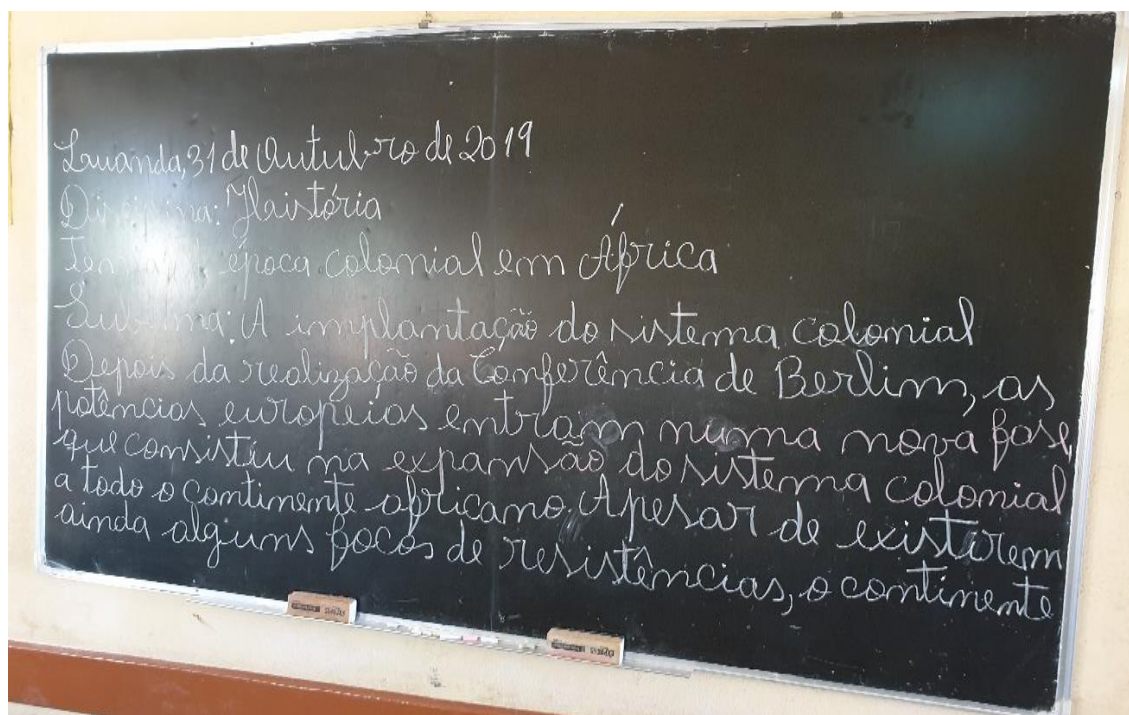 Luanda, 31 de Outubro de 2019
Disciplina: História
Tema: A época colonial em África
Subtema: A implantação do sistema colonial
Depois da realização da Conferência de Berlim, as
potências europeias entram numa nova fase,
que consistiu na expansão do sistema colonial
a todo o continente africano. Apesar de existirem
ainda alguns focos de resistências, o continente